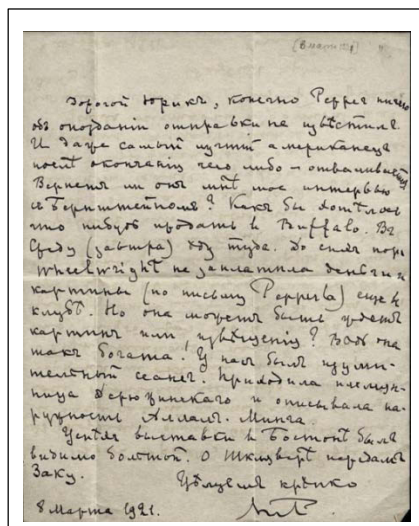 (8 марта 1921)
Дорогой Юрикъ, конечно Pepper ничего
объ опозданіи отправки не извѣстилъ.
И даже самый лучшій американецъ
послѣ окончанія чего либо – отваливается.
Вернетъ ли онъ мнѣ мое интервью
съ Бернштейномъ? Какъ бы хотѣлось
что нибудь продать въ Buffalo. Въ
Среду (завтра) ѣду туда. До сихъ поръ
Wheelwright не заплатила деньги и
картины (по письму Pepper'a) еще въ
клубѣ. Но она можетъ быть ждетъ
картинъ или извѣщенія? Вѣдь она
такъ богата. У насъ былъ изуми-
тельный сеансъ. Приходила племян-
ница Дерюжинскаго и описывала на-
ружность Аллалъ-Минга.
Успѣхъ выставки въ Бостонѣ былъ
видимо большой. О Шклявере передамъ
Заку.
Цѣлуемъ крѣпко
8 Марта 1921.